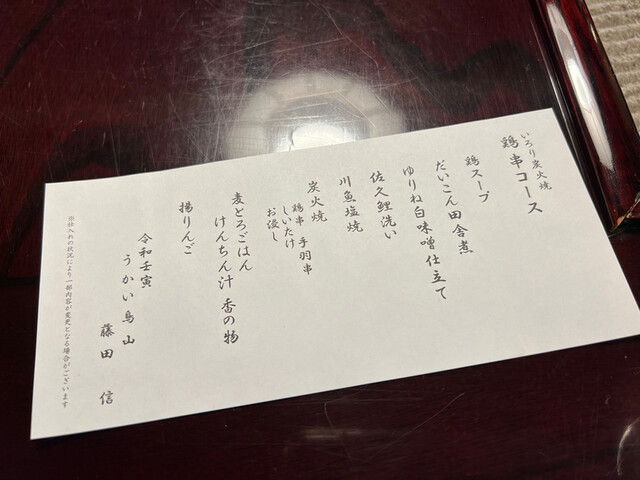 いろり炭火焼
鶏串コース
鶏スープ
だいこん田舎煮
ゆりね白味噌仕立て
佐久鯉洗い
川魚塩焼
炭火焼
鶏串 手羽串
しいたけ
お浸し
麦とろごはん
けんちん汁 香の物
揚りんご
令和壬寅
うかい鳥山
藤田 信
※仕入れの状況により一部内容が変更となる場合がございます